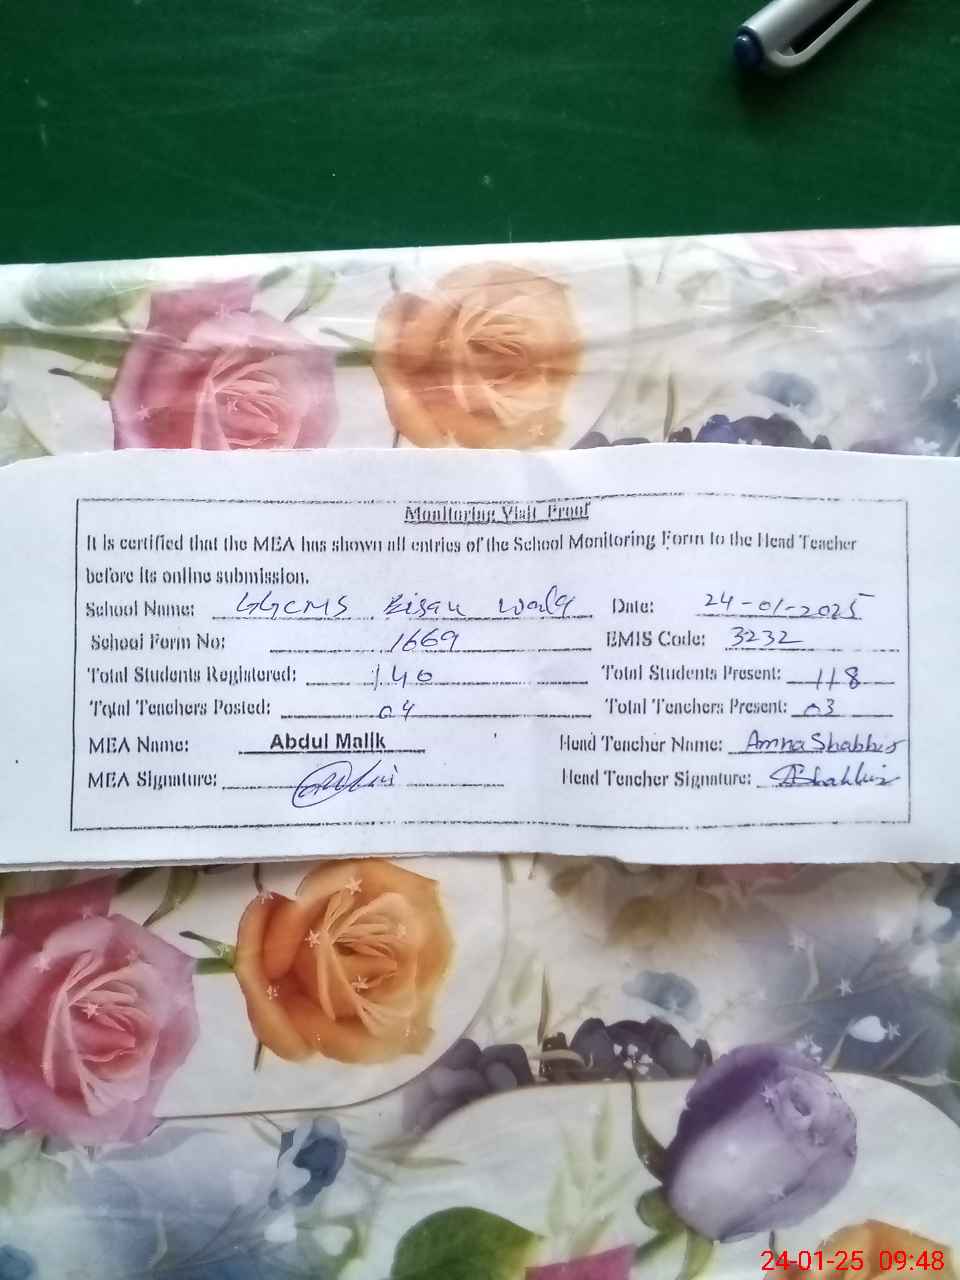 Monitoring Visit Proof
It is certified that the MEA has shown all entries of the School Monitoring Form to the Head Teacher
before its online submission.
School Name: GGCMS Date: 24-01-2025
School Form No: 1669 EMIS Code: 3232
Total Students Registered: 140 Total Students Present: 118
Total Teachers Posted: 04 Total Teachers Present: 03
MEA Name: Abdul Malik Head Teacher Name: Amna Shabbir
MEA Signature: Head Teacher Signature: AShabbir
24-01-25 09:48